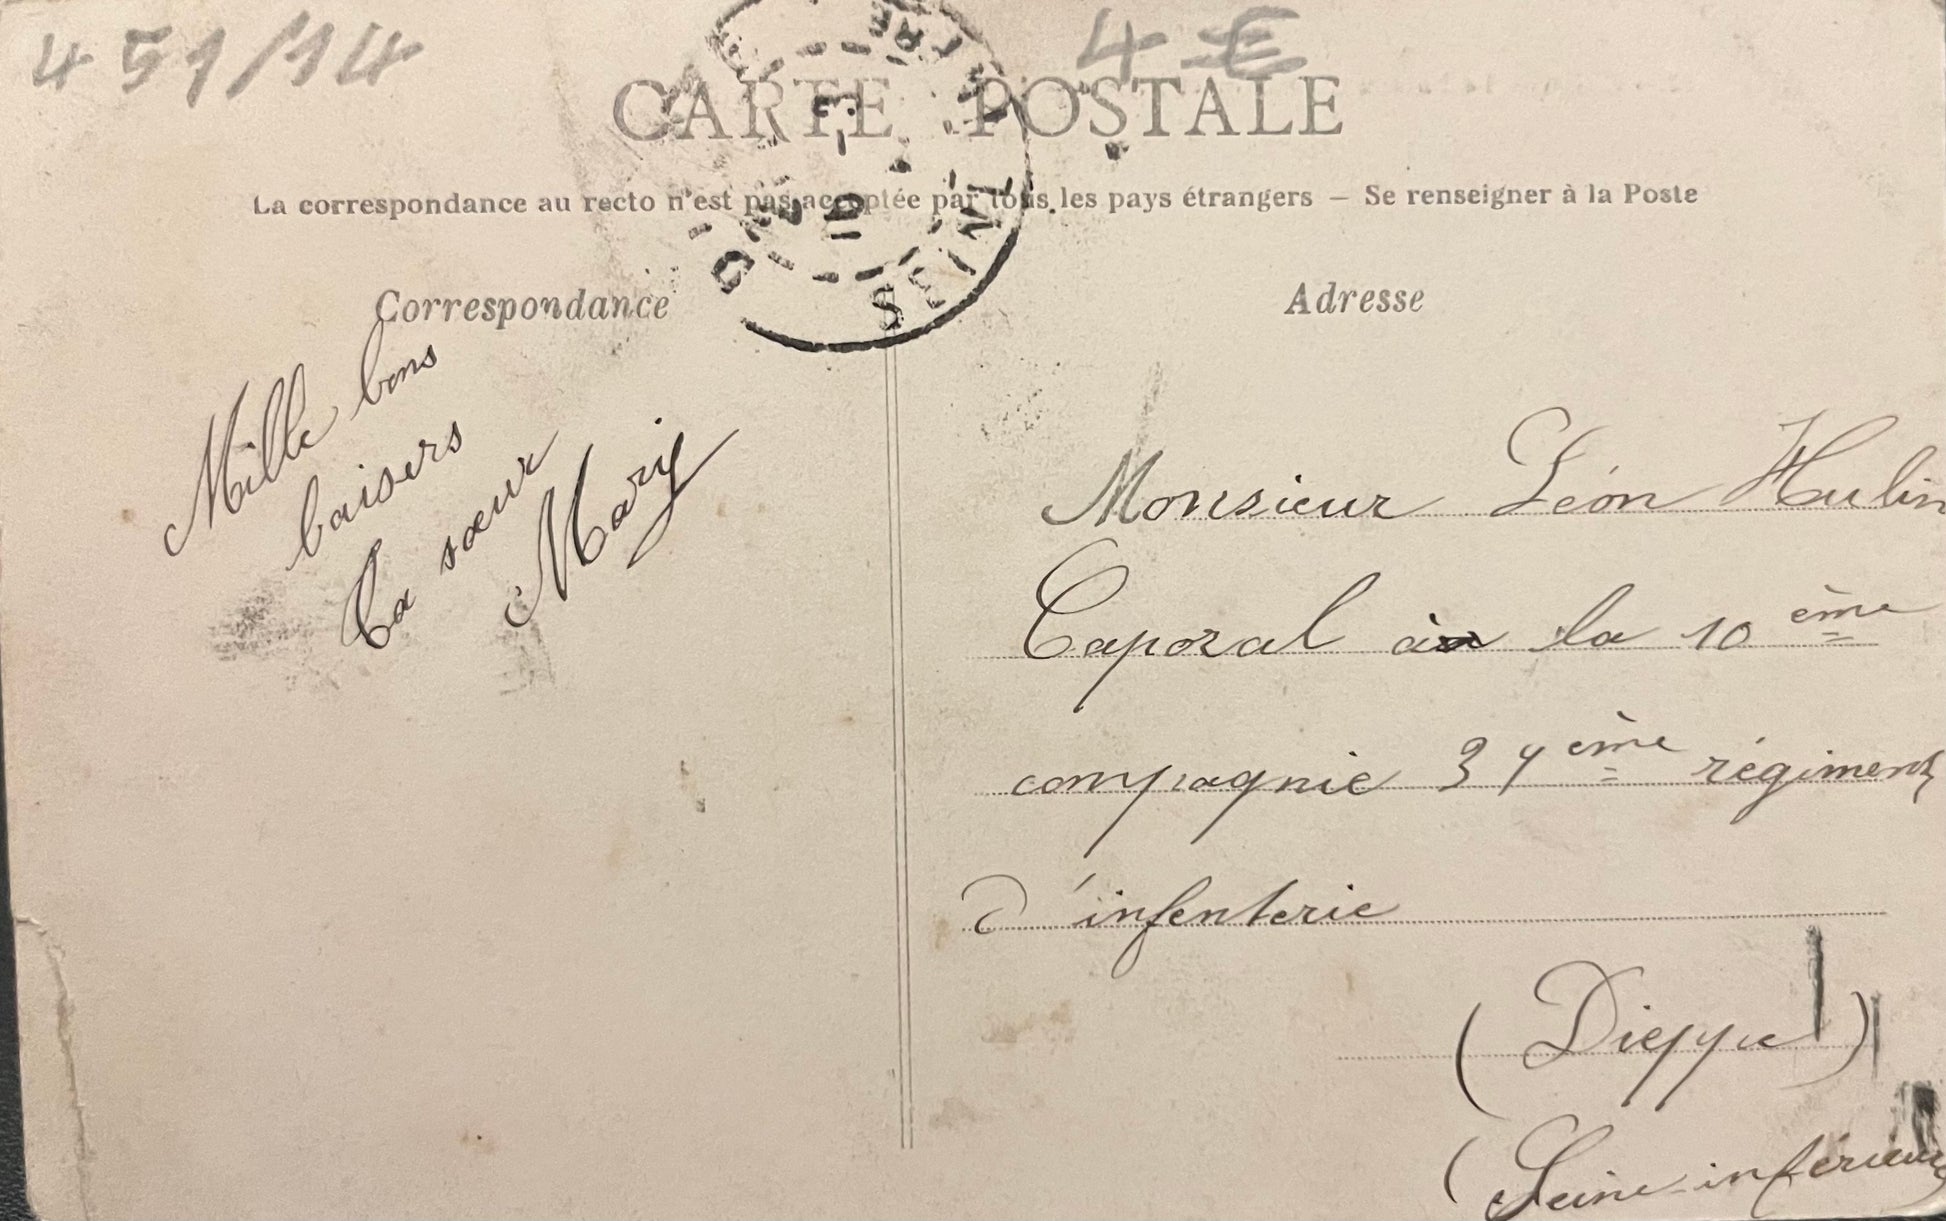 451/14
4 €
CARTE POSTALE
La correspondance au recto n'est pas acceptée par tous les pays étrangers – Se renseigner à la Poste
Correspondance
Mille bons
baisers
Ta sœur
Mary
Adresse
Monsieur Léon Hulin
Caporal à la 10 ème
compagnie 39 ème régiment
d'infenterie
(Dieppe)
(Seine-inférieure